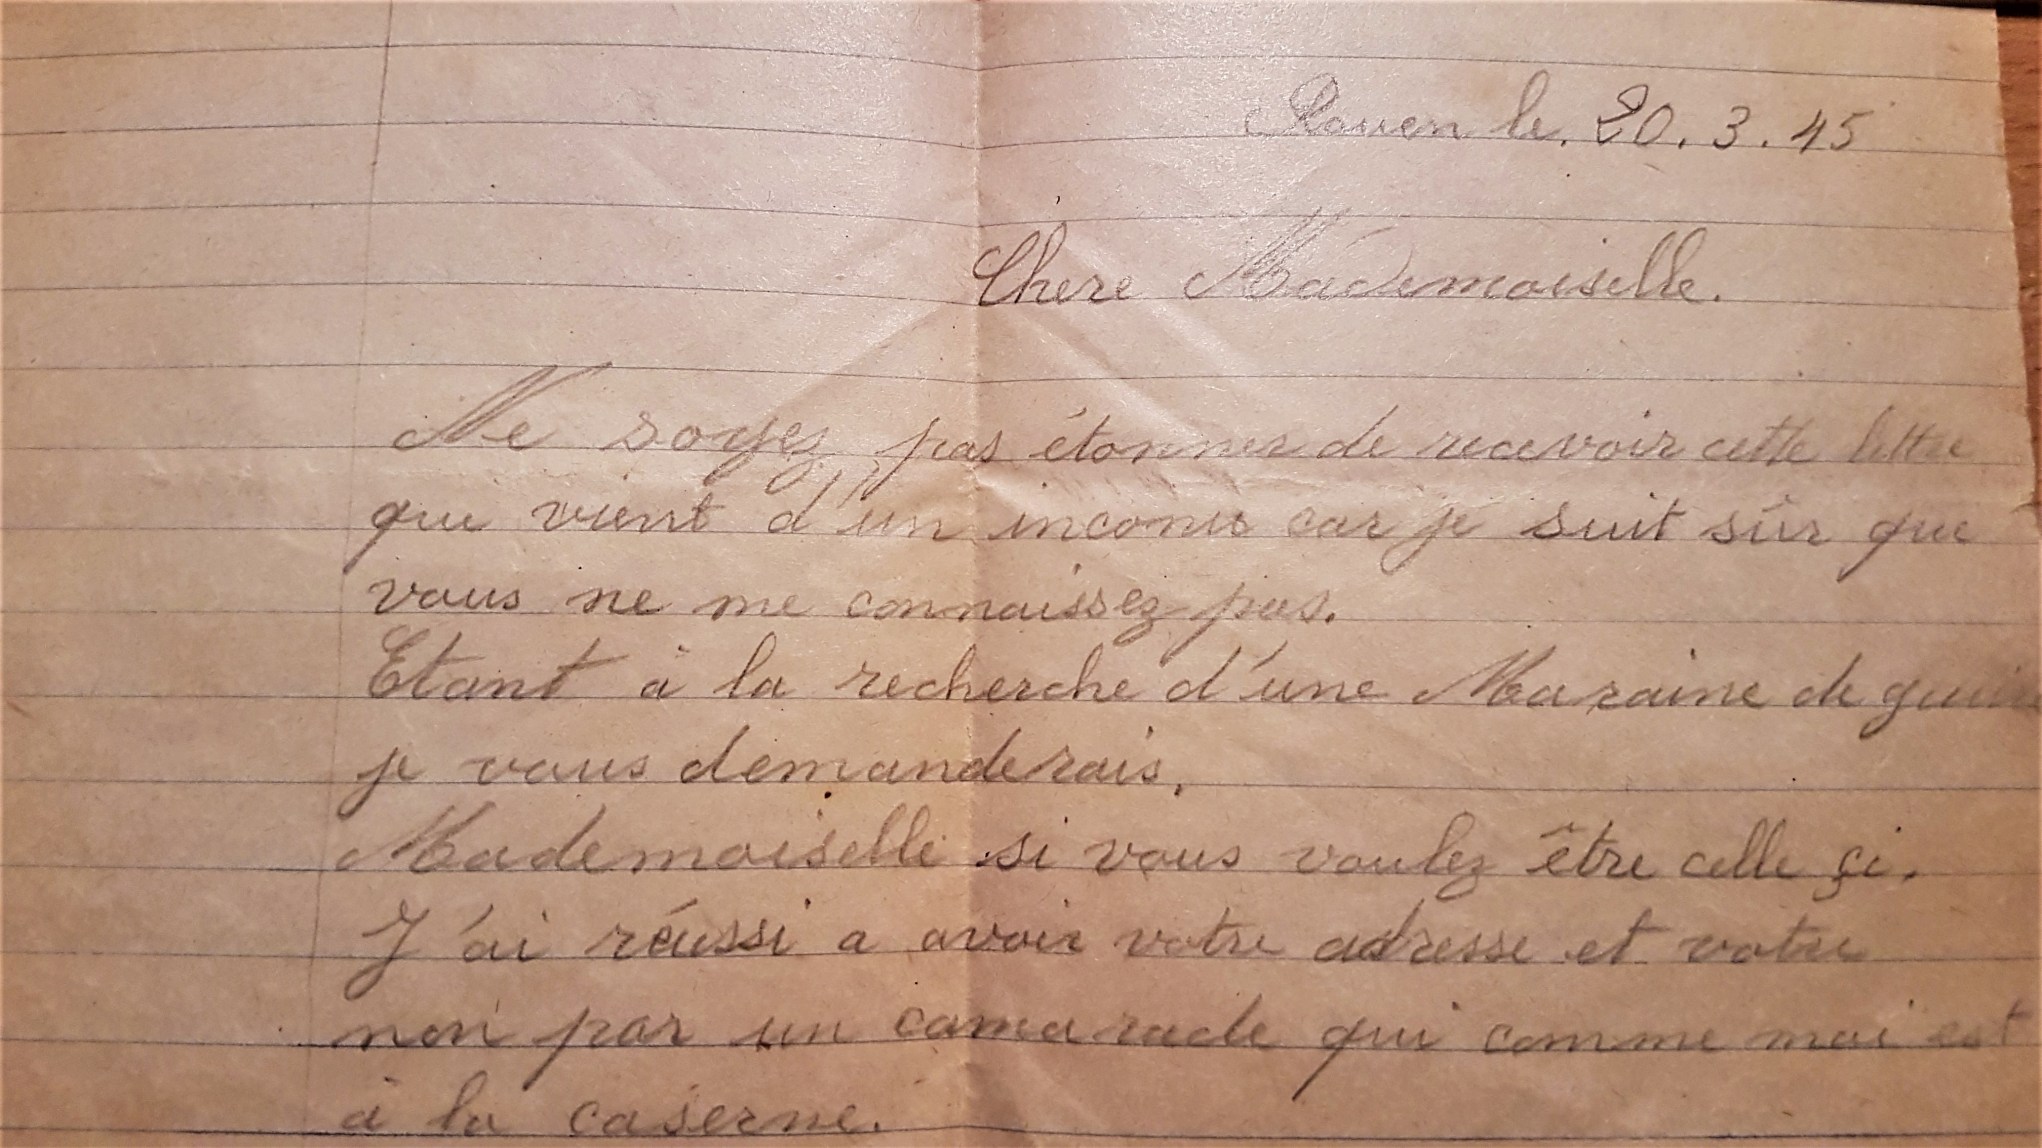 Rouen le. 20.3.45
Chere Mademoiselle.
Ne soyez pas étonner de recevoir cette lettre
que vient d'un inconu car je suit sûr que
vous ne me connaissez pas.
Etant à la recherche d'une Maraine de guerre
je vous demanderais.
Mademoiselle si vous voulez être celle çi.
J'ai réussi a avoir votre adresse et votre
non par un camarade qui comme moi est
à la caserne.